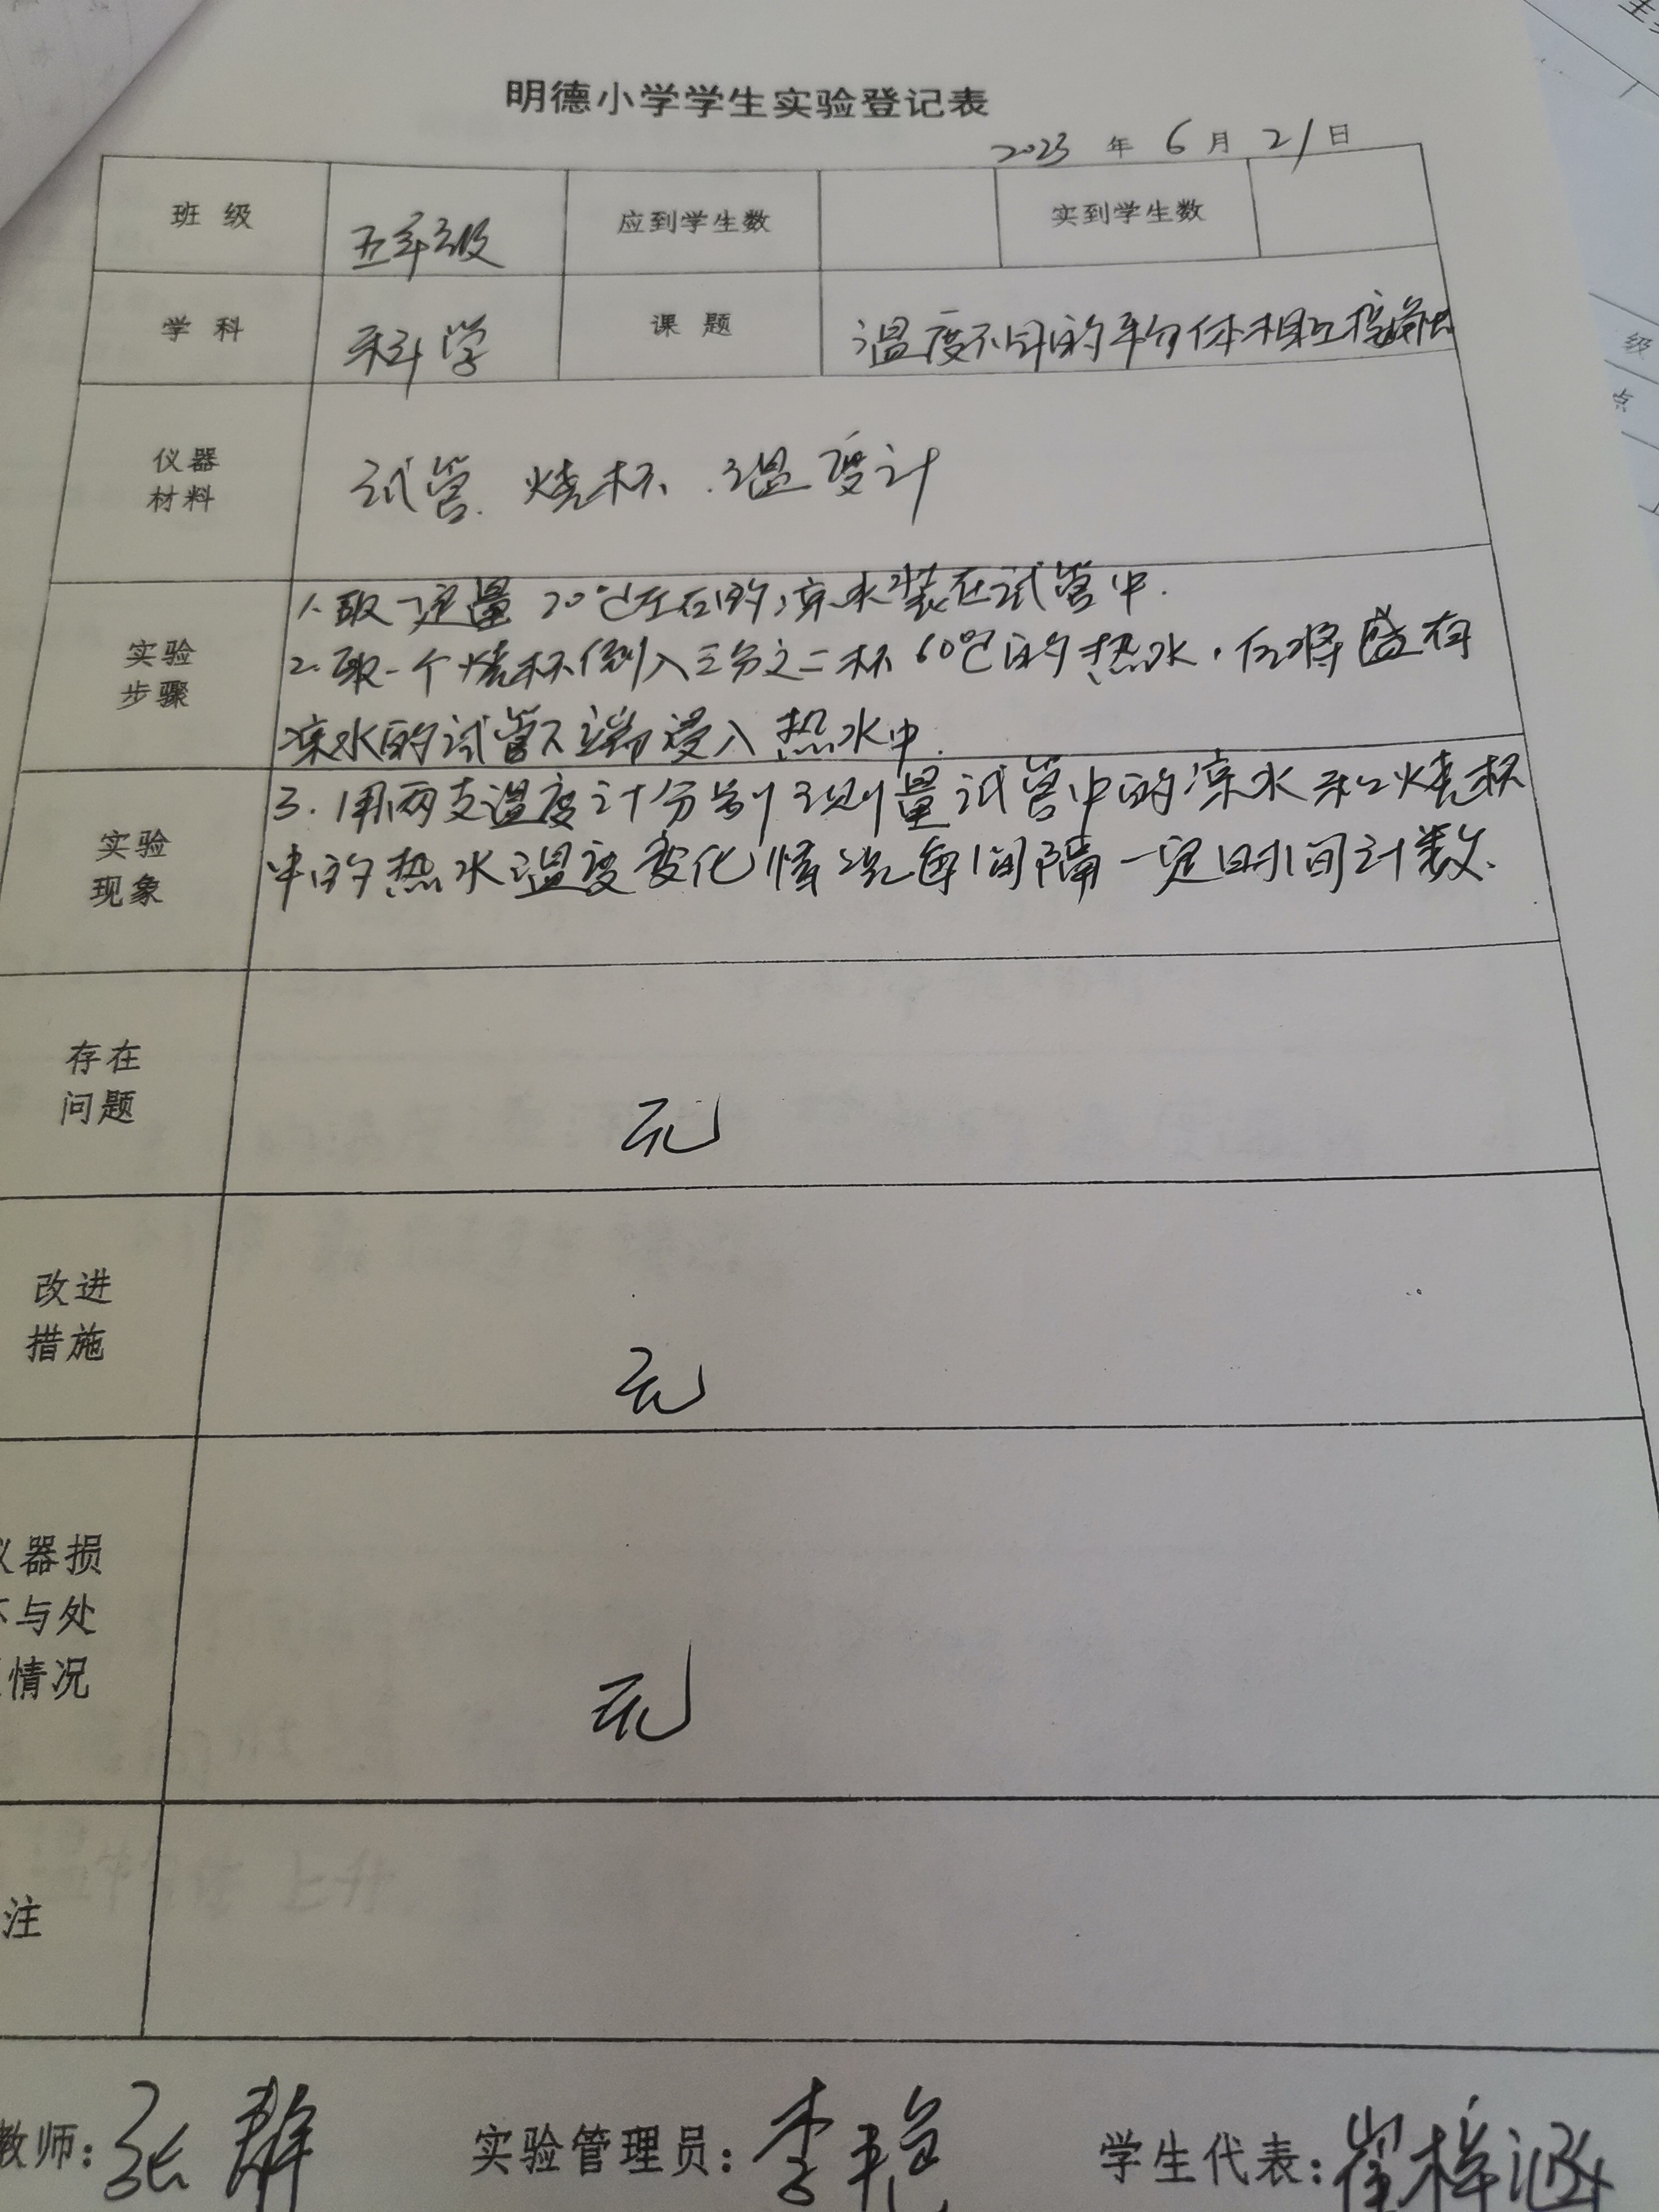 明德小学学生实验登记表
2023 年 6 月 21 日
班级 五年级 应到学生数 实到学生数
学科 科学 课题 温度不同的物体相互接触
仪器
材料
试管、烧杯、温度计
实验
步骤
1、取一定量20℃左右的凉水装在试管中.
2.取一个烧杯倒入三分之二杯60℃的热水,在将盛有
凉水的试管下端浸入热水中.
实验
现象
3.用两支温度计分别测量试管中的凉水和烧杯
中的热水温度变化情况每间隔一定时间计数.
存在
问题
无
改进
措施
无
仪器损
与处
情况
无
注
教师: 张群 实验管理员: 李艳 学生代表: 崔梓涵